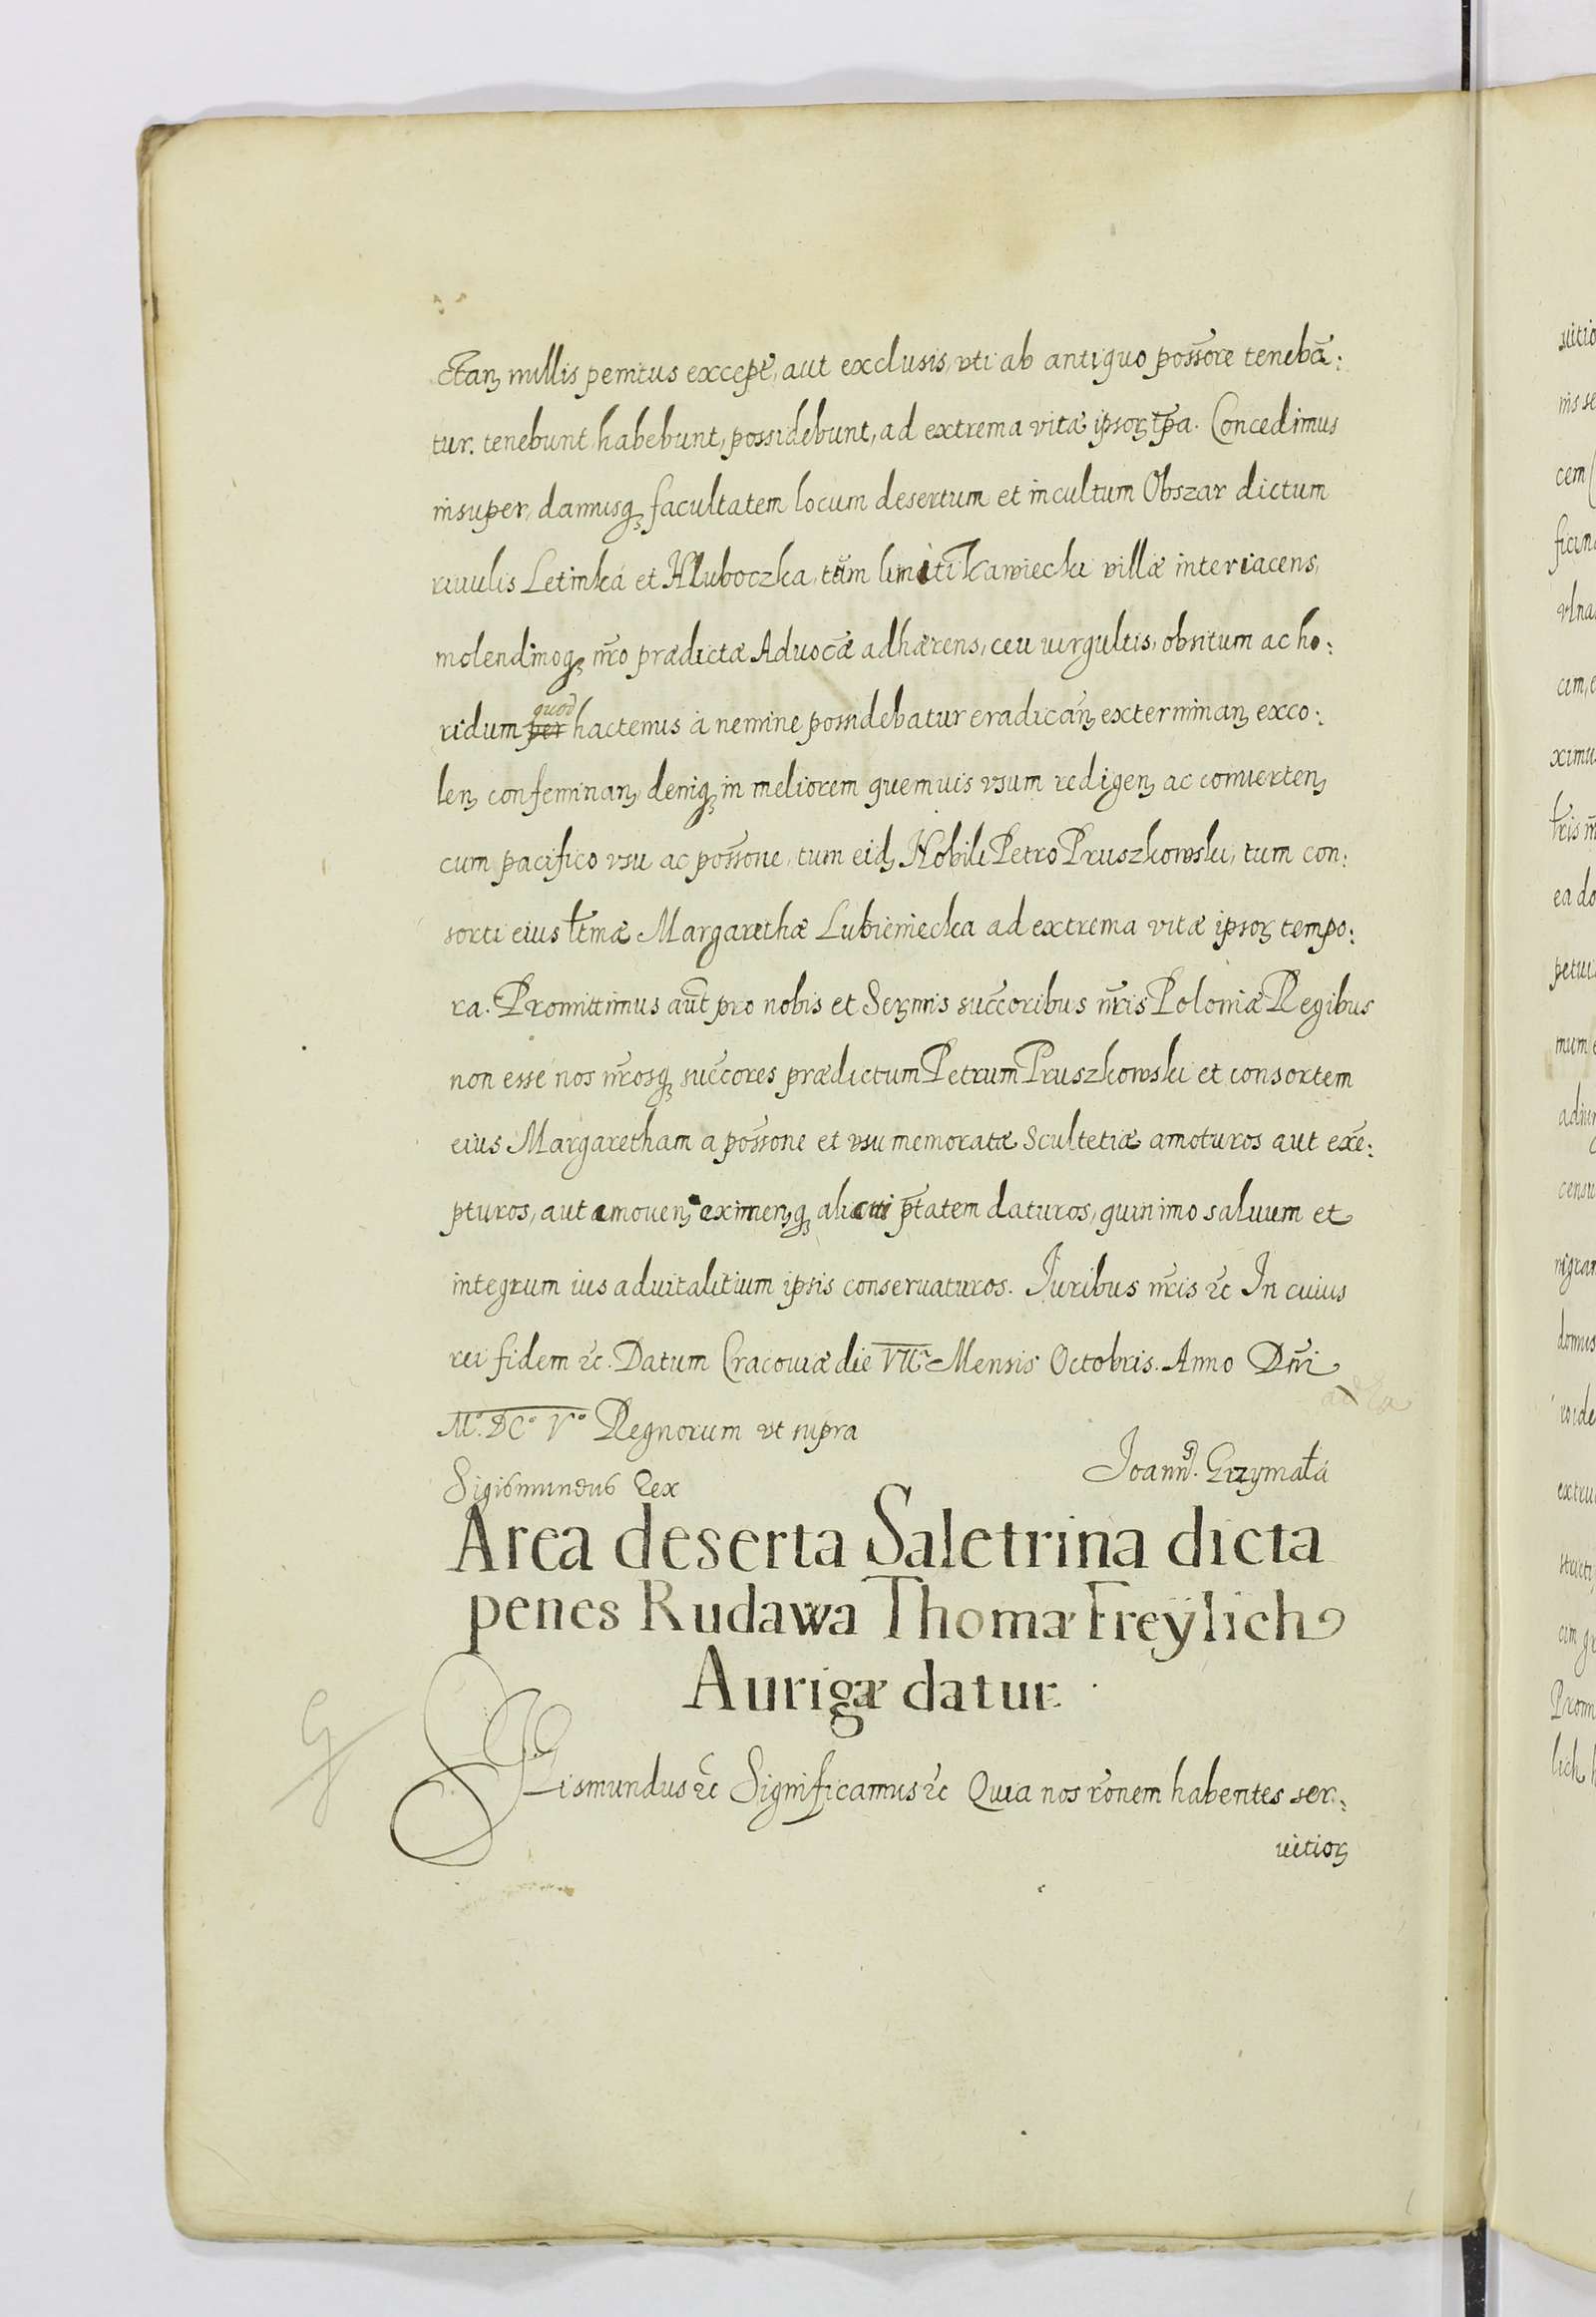 ctanꝫ nullis penitus excepꝭt, aut exclusis, vti ab antiquo poss̃ore tenebã:
tur. tenebunt habebunt, possidebunt, ad extrema vitæ ipsoꝝ tp̃a. Concedimus
insuper, damusqꝫ facultatem locum desertum et incultum Obszar dictum
riuulis Letinká et Hluboczka, tũm limiti Kawiecki villæ interiacens,
molendinoqꝫ nr̃o prædictæ Aduocãe adhærens, ceu uirgultis, obsitum ac ho:
ridum per quod hactenus à nemine possidebatur eradicañꝫ exterminanꝫ exco:
lenꝫ conseminanꝫ deniqꝫ in meliorem quemuis vsum redigenꝫ ac conuertenꝫ
cum pacifico vsu ac poss̃one, tum eidꝫ Nobili Petro Pruszkowski, tum con:
sorti eius ltm̃æ Margarethæ Lubieniecka ad extrema vitæ ipsoꝝ tempo:
ra. Promittimus aũt pro nobis et Serꝫmis succ̃oribus nr̃is Poloniæ Regibus
non esse nos nr̃osqꝫ succ̃ores prædictum Petrum Pruszkowski et consortem
eius Margaretham a poss̃one et vsu memoratæ Scultetiæ amoturos aut exẽ:
pturos, aut amouenꝫ eximenꝫqꝫ alicui ptãtem daturos, quinimo saluum et
integrum ius aduitalitium ipsis conseruaturos. Iuribus nr̃is &c In cuius
rei fidem &c. Datum Cracouiæ die VIIa Mensis Octobris. Anno Dñi
Mº. DCº Vº Regnorum vt supra
Sigismundus Rex
Joanñ. Grzymałá
Area deserta Saletrina dicta
penes Rudawa Thomæ Freÿlich
Aurigæ datur.
SIGismundus &c Significamus &c Quia nos rõnem habentes ser:
uitioꝝ